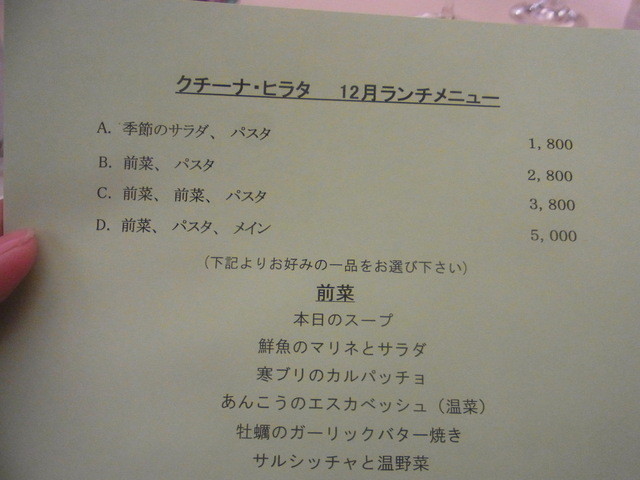 クチーナ・ヒラタ 12月ランチメニュー
A. 季節のサラダ、 パスタ 1,800
B. 前菜、 パスタ 2,800
C. 前菜、 前菜、 パスタ 3,800
D. 前菜、 パスタ、 メイン 5,000
（下記よりお好みの一品をお選び下さい）
前菜
本日のスープ
鮮魚のマリネとサラダ
寒ブリのカルパッチョ
あんこうのエスカベッシュ（温菜）
牡蠣のガーリックバター焼き
サルシッチャと温野菜